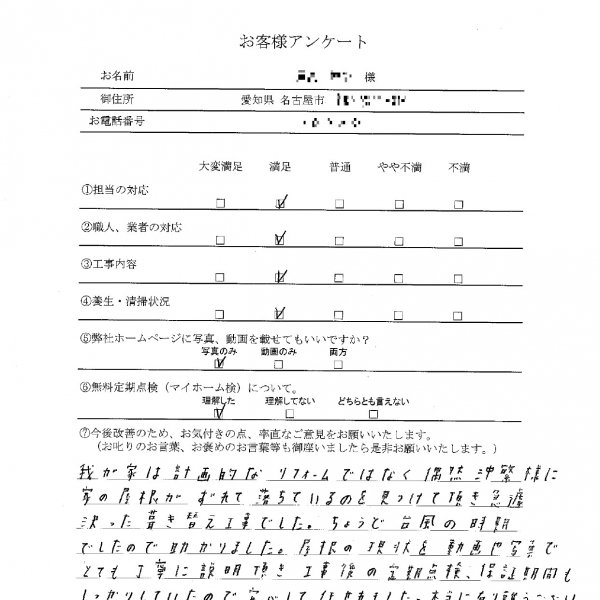 お客様アンケート
お名前 様
御住所 愛知県 名古屋市
お電話番号
大変満足 満足 普通 やや不満 不満
①担当の対応
②職人、業者の対応
③工事内容
④養生・清掃状況
⑤弊社ホームページに写真、動画を載せてもいいですか?
写真のみ 動画のみ 両方
⑥無料定期点検(マイホーム検)について。
理解した 理解してない どちらとも言えない
⑦今後改善のため、お気付きの点、率直なご意見をお願いいたします。
(お叱りのお言葉、お褒めのお言葉等も御座いましたら是非お願いいたします。)
我が家は計画的なリフォームではなく偶然沖繁様に
家の屋根がずれて落ちているのを見つけて頂き急遽
決った葺き替え工事でした。ちょうど台風の時期
でしたので助かりました。屋根の現状を動画や写真で
とても丁寧に説明頂き工事後の定期点検、保証期間も
しっかりしていたので安心して